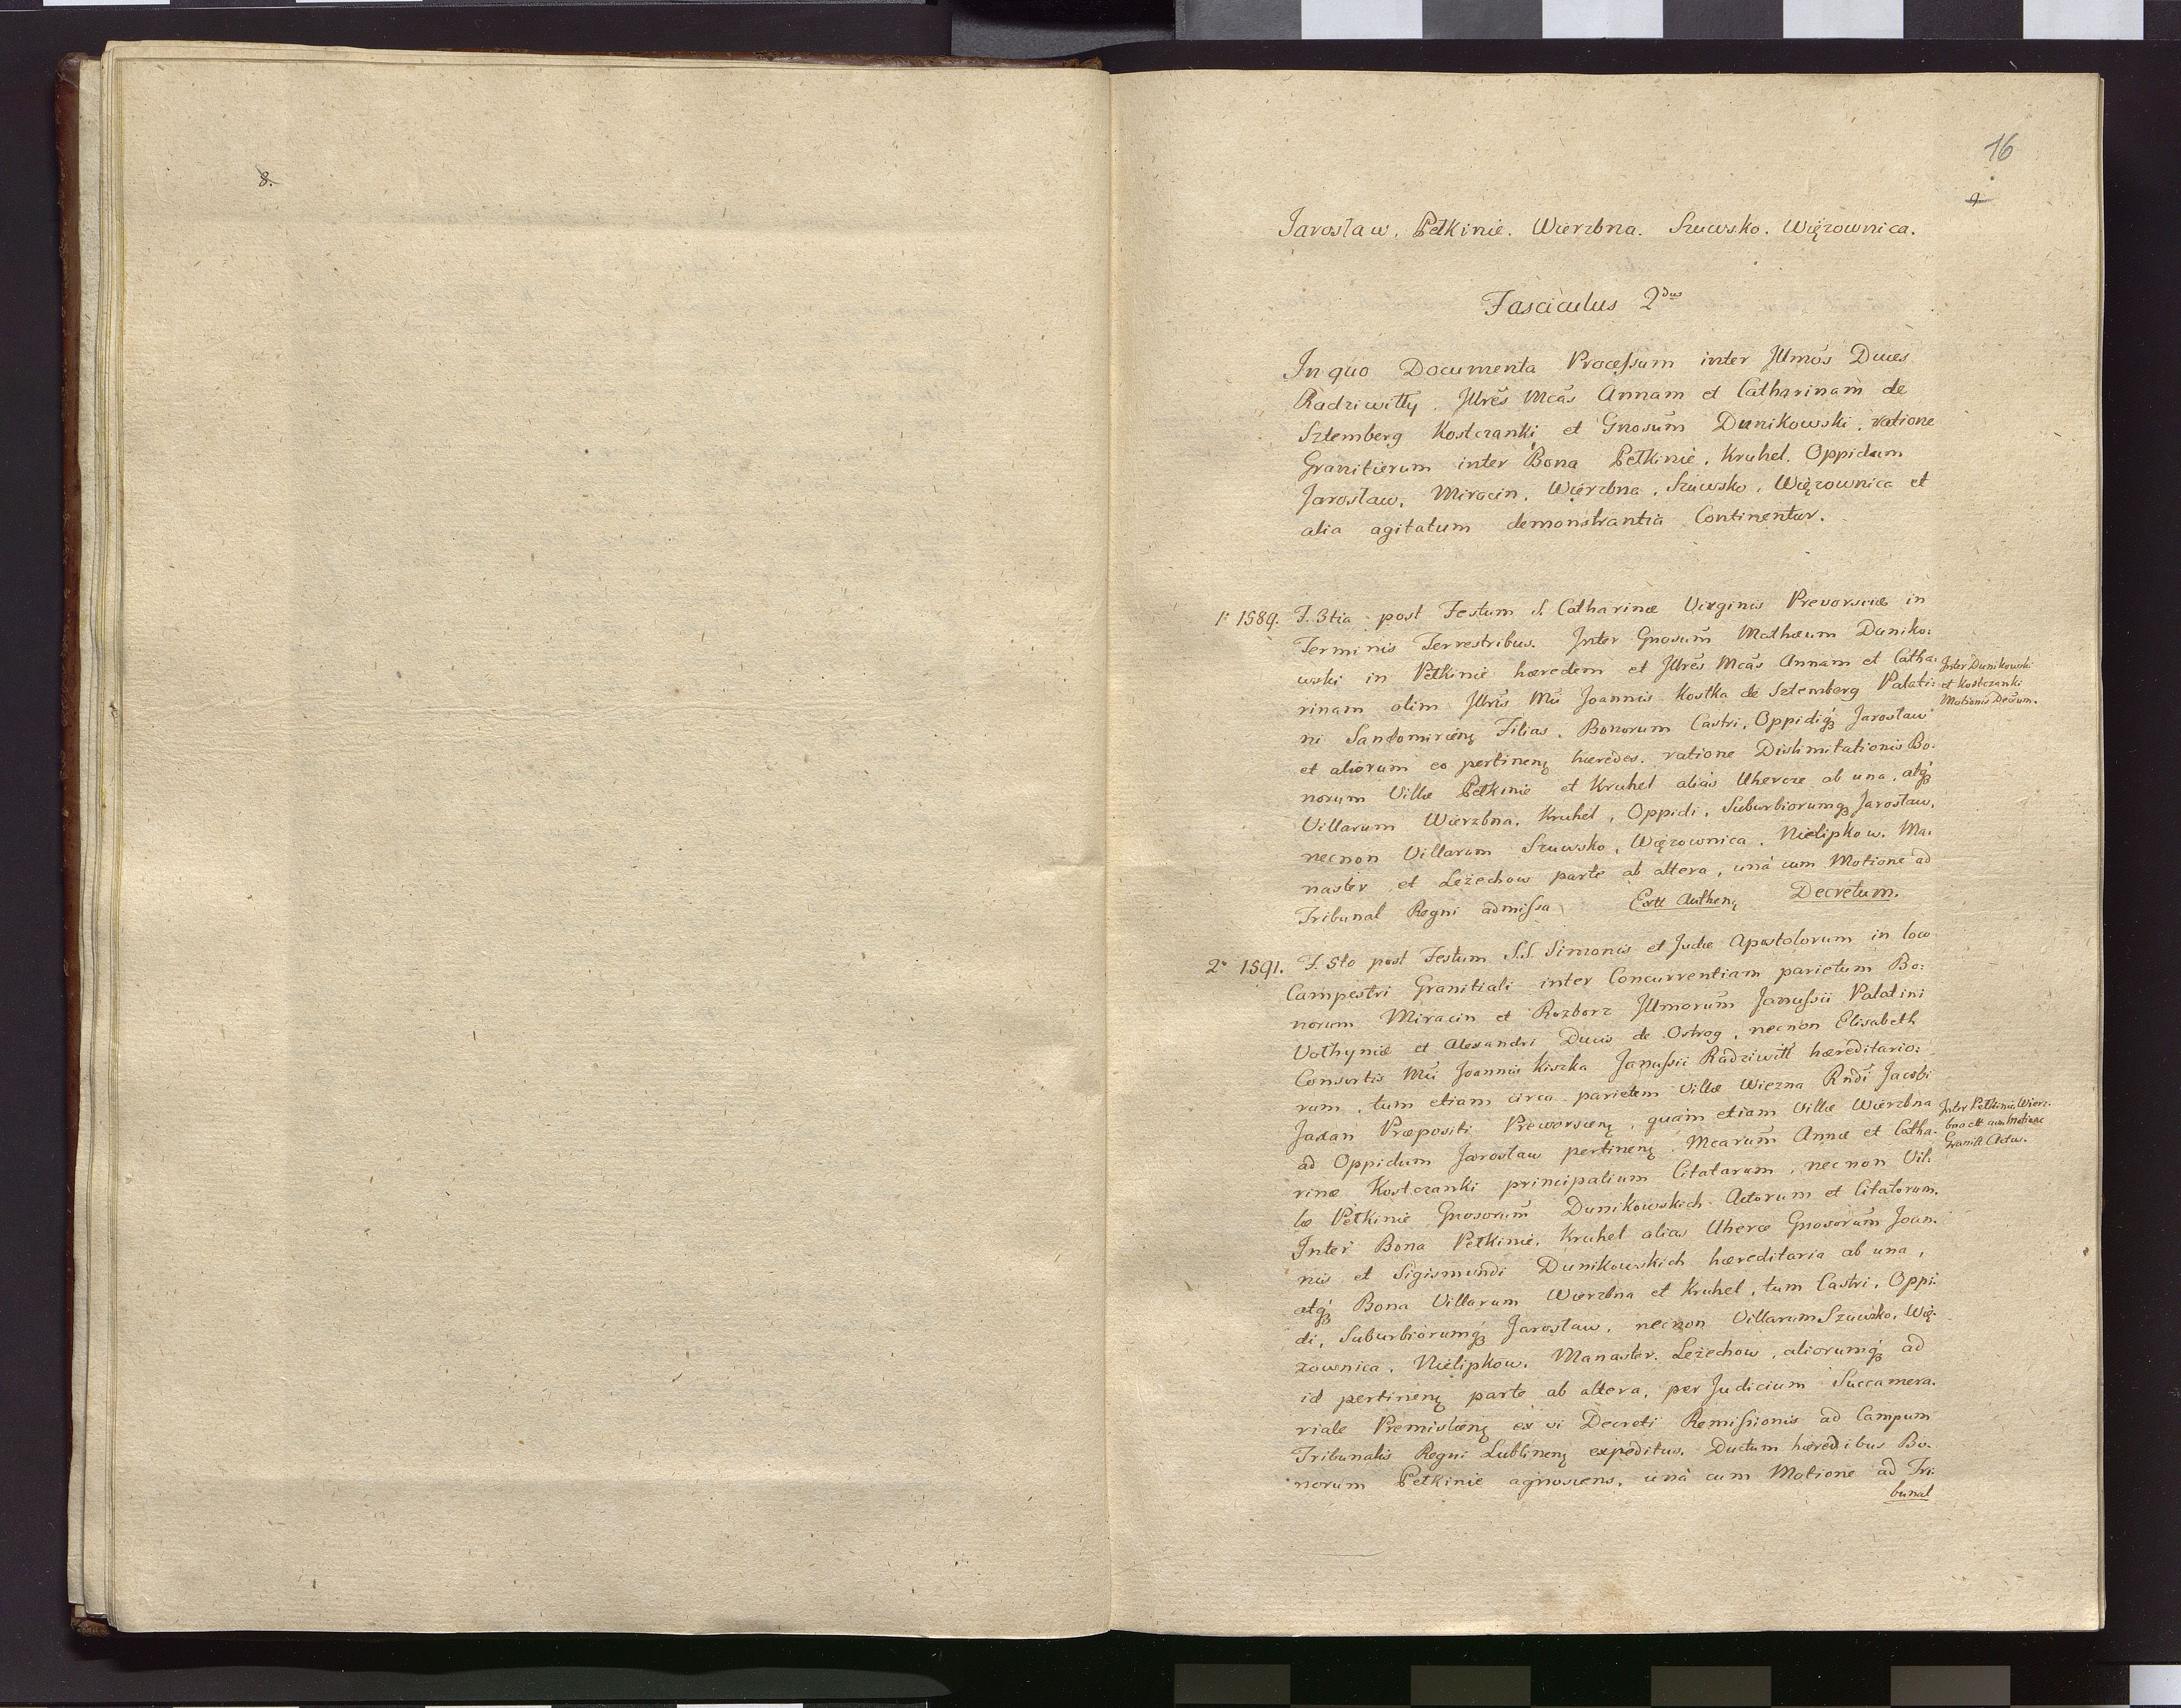 8.
16
9
Jarosław. Pełkinie. Wierzbna. Szuwsko. Więzownica.
Fasciculus 2dus
In quo Documenta Processum inter Illmos Duces
Radziwiłły, Illres Mcas Annam et Catharinam de
Sztemberg Kostczanki et Gnosum Dunikowski, ratione
Granitierum inter Bona Pełkinie, Kruhel, Oppidum
Jarosław, Miracin, Wierzbna, Szuwsko, Więzownica et
alia agitatum demonstrantia Continentur.
1º 1589. F. 3tia post Festum S. Catharinæ Virginis Prevorsciæ in
Terminis Terrestribus. Inter Gnosum Mathæum Duniko:
wski in Pełkinie hæredem et Illres Mcas Annam et Catha:
rinam olim Illris Mci Joannis Kostka de Sztemberg Palati:
ni Sandomirieñ Filias, Bonorum Castri, Oppidiq Jarosław
et aliorum eo pertineñ hæredes, ratione Dislimitationis Bo:
norum Villæ Pełkinie et Kruhel alias Uherce ab una, atq
Villarum Wierzbna, Kruhel, Oppidi, Suburbiorumq Jarosław,
necnon Villarum Szuwsko, Więzownica, Nielipkow, Ma:
naster, et Leżechow parte ab altera, unà cum Motione ad
Tribunal Regni admissa Extt Autheñ Decretum.
Inter Dunikowski
et Kostczanki
Motionis Decrum.
2º 1591. F. 5to post Festum S.S. Simonis et Judæ Apostolorum in loco
Campestri Granitiali inter Concurrentiam parietum Bo:
norum Miracin et Rozborz Illmorum Janussii Palatini
Volhyniæ et Alexandri Ducis de Ostrog, necnon Elisabeth
Consortis Mci Joannis Kiszka Janussii Radziwiłł hæreditario:
rum, tum etiam circa parietem Villæ Wiezna Rndi Jacobi
Jaxan Præpositi Preworscieñ, quàm etiam Villæ Wierzbna
ad Oppidum Jarosław pertineñ, Mcarum Annæ et Catha:
rinæ Kostczanki principalium Citatarum, necnon Vil:
læ Pełkinie Gnosorum Dunikowskich Actorum et Citatorum.
Inter Bona Pełkinie, Kruhel alias Uherce Gnosorum Joan:
nis et Sigismundi Dunikowskich hæreditaria ab una,
atq Bona Villarum Wierzbna et Kruhel, tum Castri, Oppi:
di, Suburbiorumq Jarosław, necnon Villarum Szuwsko, Wię:
zownica, Nielipkow, Manaster, Leżechow, aliorumq ad
id pertineñ parte ab altera, per Judicium Succamera:
riale Premislieñ ex vi Decreti Remissionis ad Campum
Tribunalis Regni Lublineñ expeditus, Ductum hæredibus Bo:
norum Pełkinie agnoscens, unà cum Motione ad Tri:
bunal
Inter Pełkinie, Wierz:
bna ett cum Motione
Granitt Actus.